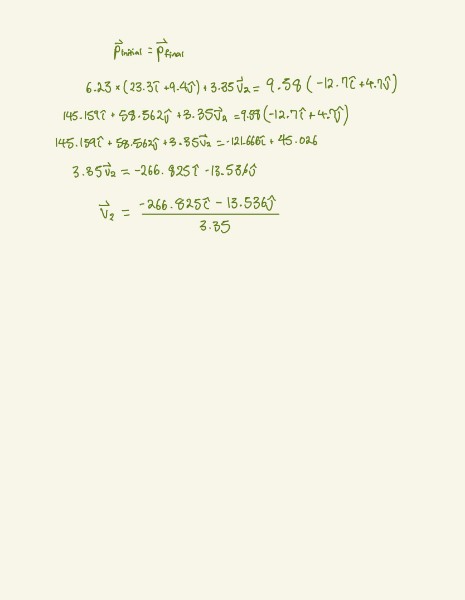 p⃗initial = p⃗final
6.23 × (23.3î + 9.4ĵ) + 3.35 v⃗₂ = 9.58 ( -12.7î + 4.7ĵ)
145.159î + 58.562ĵ + 3.35v⃗₂ = 9.58 (-12.7î + 4.7ĵ)
145.159î + 58.562ĵ + 3.35v⃗₂ = -121.666î + 45.026
3.35v⃗₂ = -266.825î - 13.536ĵ
v⃗₂ = -266.825î - 13.536ĵ / 3.35